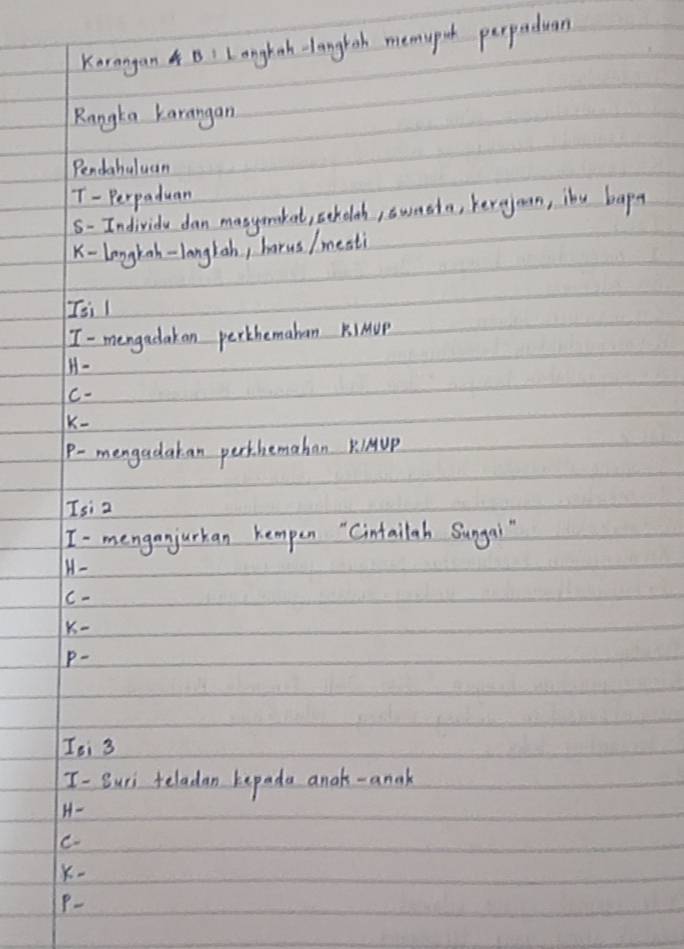 Karangan B : Langkah-langkah memupuk perpaduan
Rangka karangan
Pendahuluan
T - Perpaduan
S - Individu dan masyarakat, sekolah, swasta, kerajaan, ibu bapa
K - Langkah-langkah, harus/mesti
Isi 1
I - mengadakan perkhemahan KIMUP
H -
C -
K -
P - mengadakan perkhemahan KIMUP
Isi 2
I - menganjurkan kempen "Cintailah Sungai"
H -
C -
K -
P -
Isi 3
I - Suri teladan kepada anak-anak
H -
C -
K -
P -